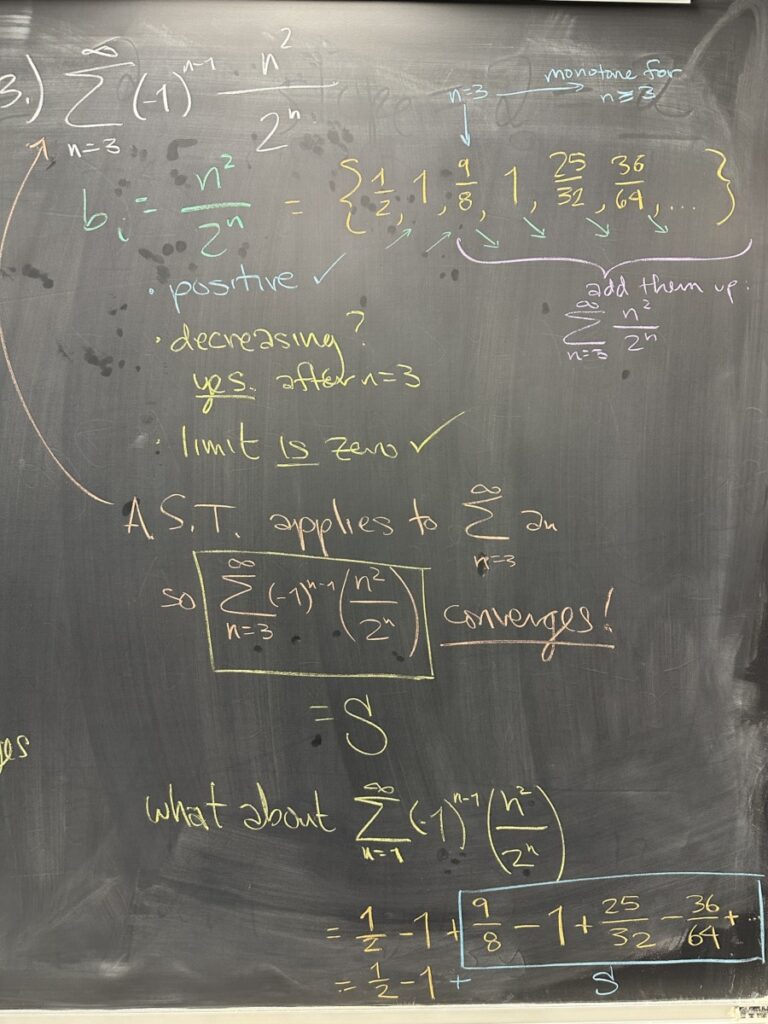 3.) ∞ ∑ n=3 (-1)^(n-1) n²/2ⁿ
n=3 → monotone for n≥3
bᵢ = n²/2ⁿ = {1/2, 1, 9/8, 1, 25/32, 36/64, ...}
· positive ✓
add them up:
∞ ∑ n=3 n²/2ⁿ
· decreasing?
yes. after n=3
· limit is zero ✓
A.S.T. applies to ∞ ∑ n=3 an
so ∞ ∑ n=3 (-1)^(n-1) (n²/2ⁿ) converges!
= S
what about ∞ ∑ n=1 (-1)^(n-1) (n²/2ⁿ)
= 1/2 - 1 + 9/8 - 1 + 25/32 - 36/64 + ...
= 1/2 - 1 + S